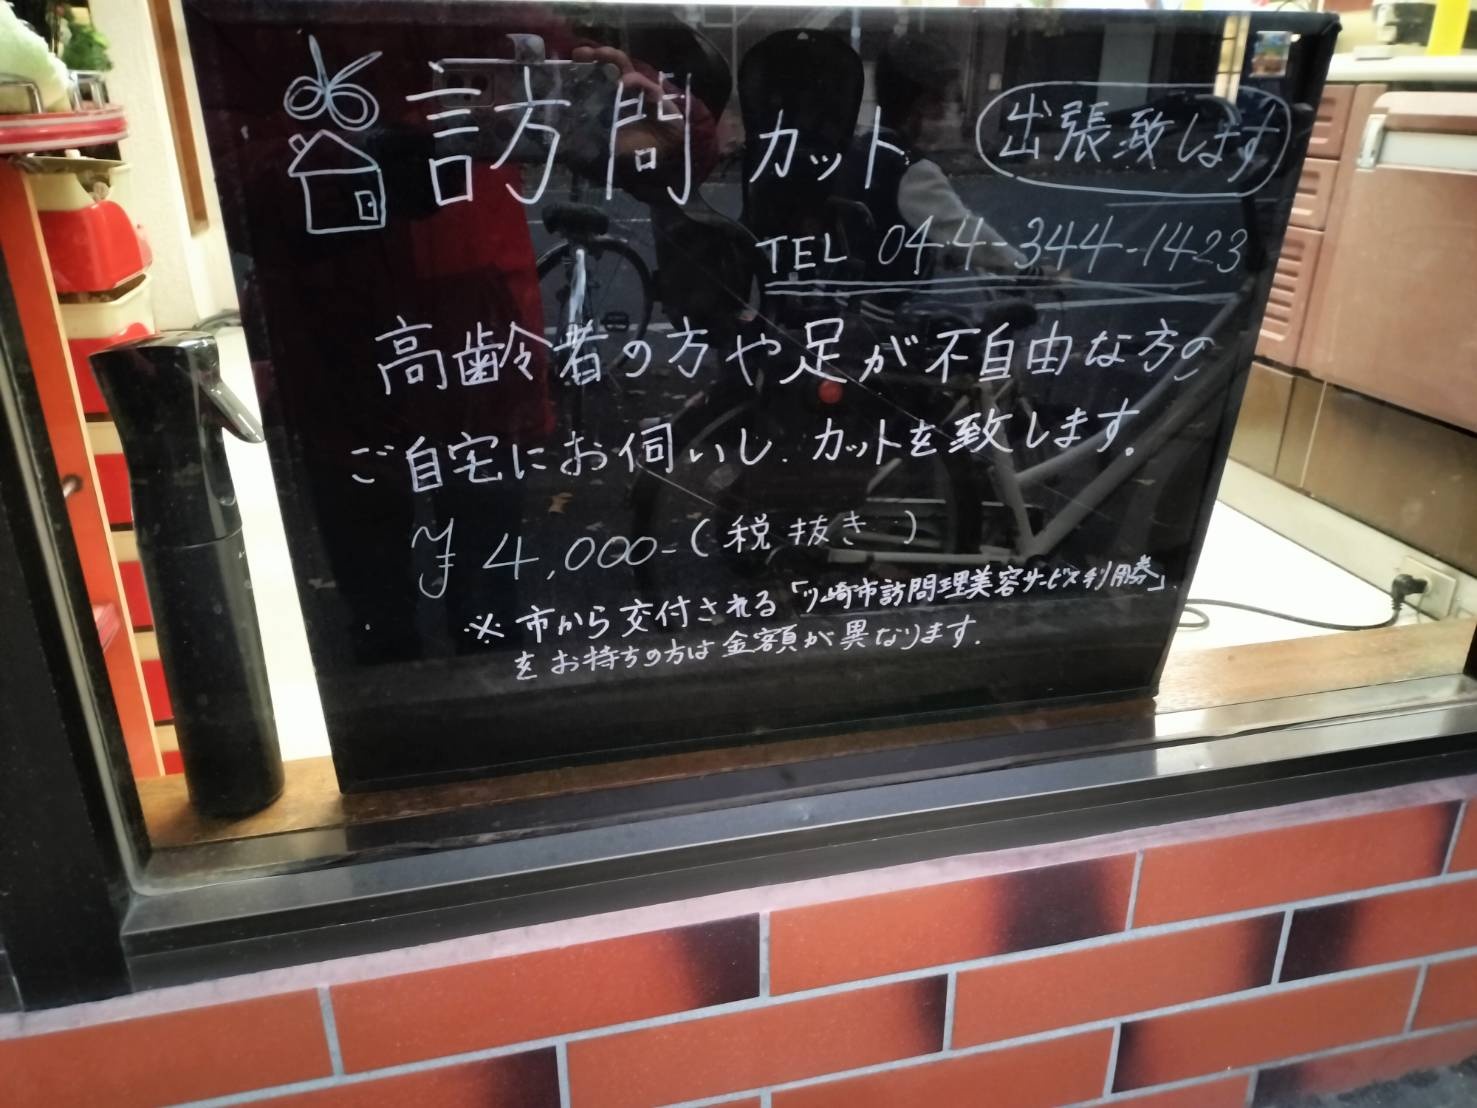 訪問カット 出張致します
TEL 044-344-1423
高齢者の方や足が不自由な方の
ご自宅にお伺いし、カットを致します。
¥4,000-(税抜き)
※市から交付される「川崎市訪問理美容サービス利用券」
をお持ちの方は金額が異なります.